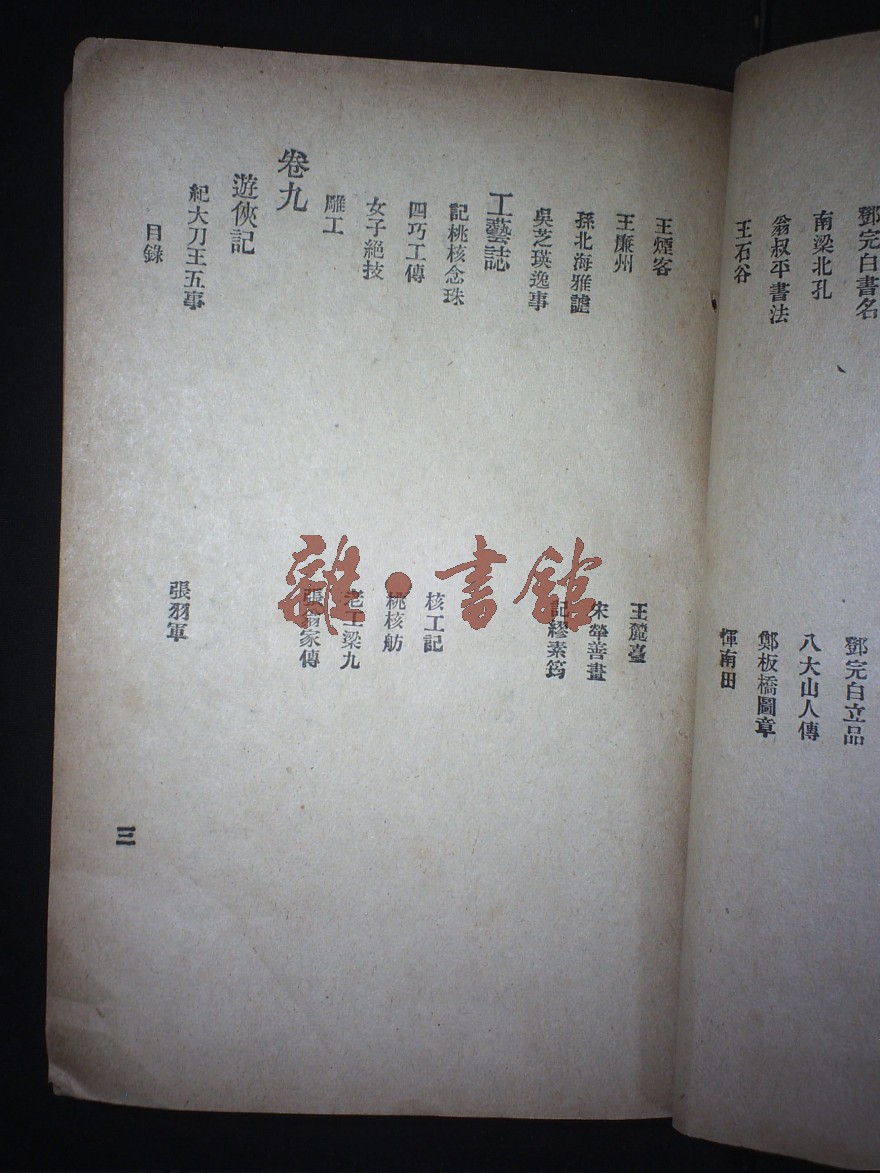 鄧完白書名
鄧完白立品
南梁北孔
八大山人傳
翁叔平書法
鄭板橋圖章
王石谷
惲南田
王煙客
王麓臺
王廉州
宋犖善畫
孫北海雅謔
記繆素筠
吳芝瑛逸事
工藝誌
記桃核念珠
核工記
四巧工傳
桃核舫
女子絕技
老工梁九
雕工
張翁家傳
卷九
遊俠記
紀大刀王五事
張羽軍
目錄
三
雜·書館